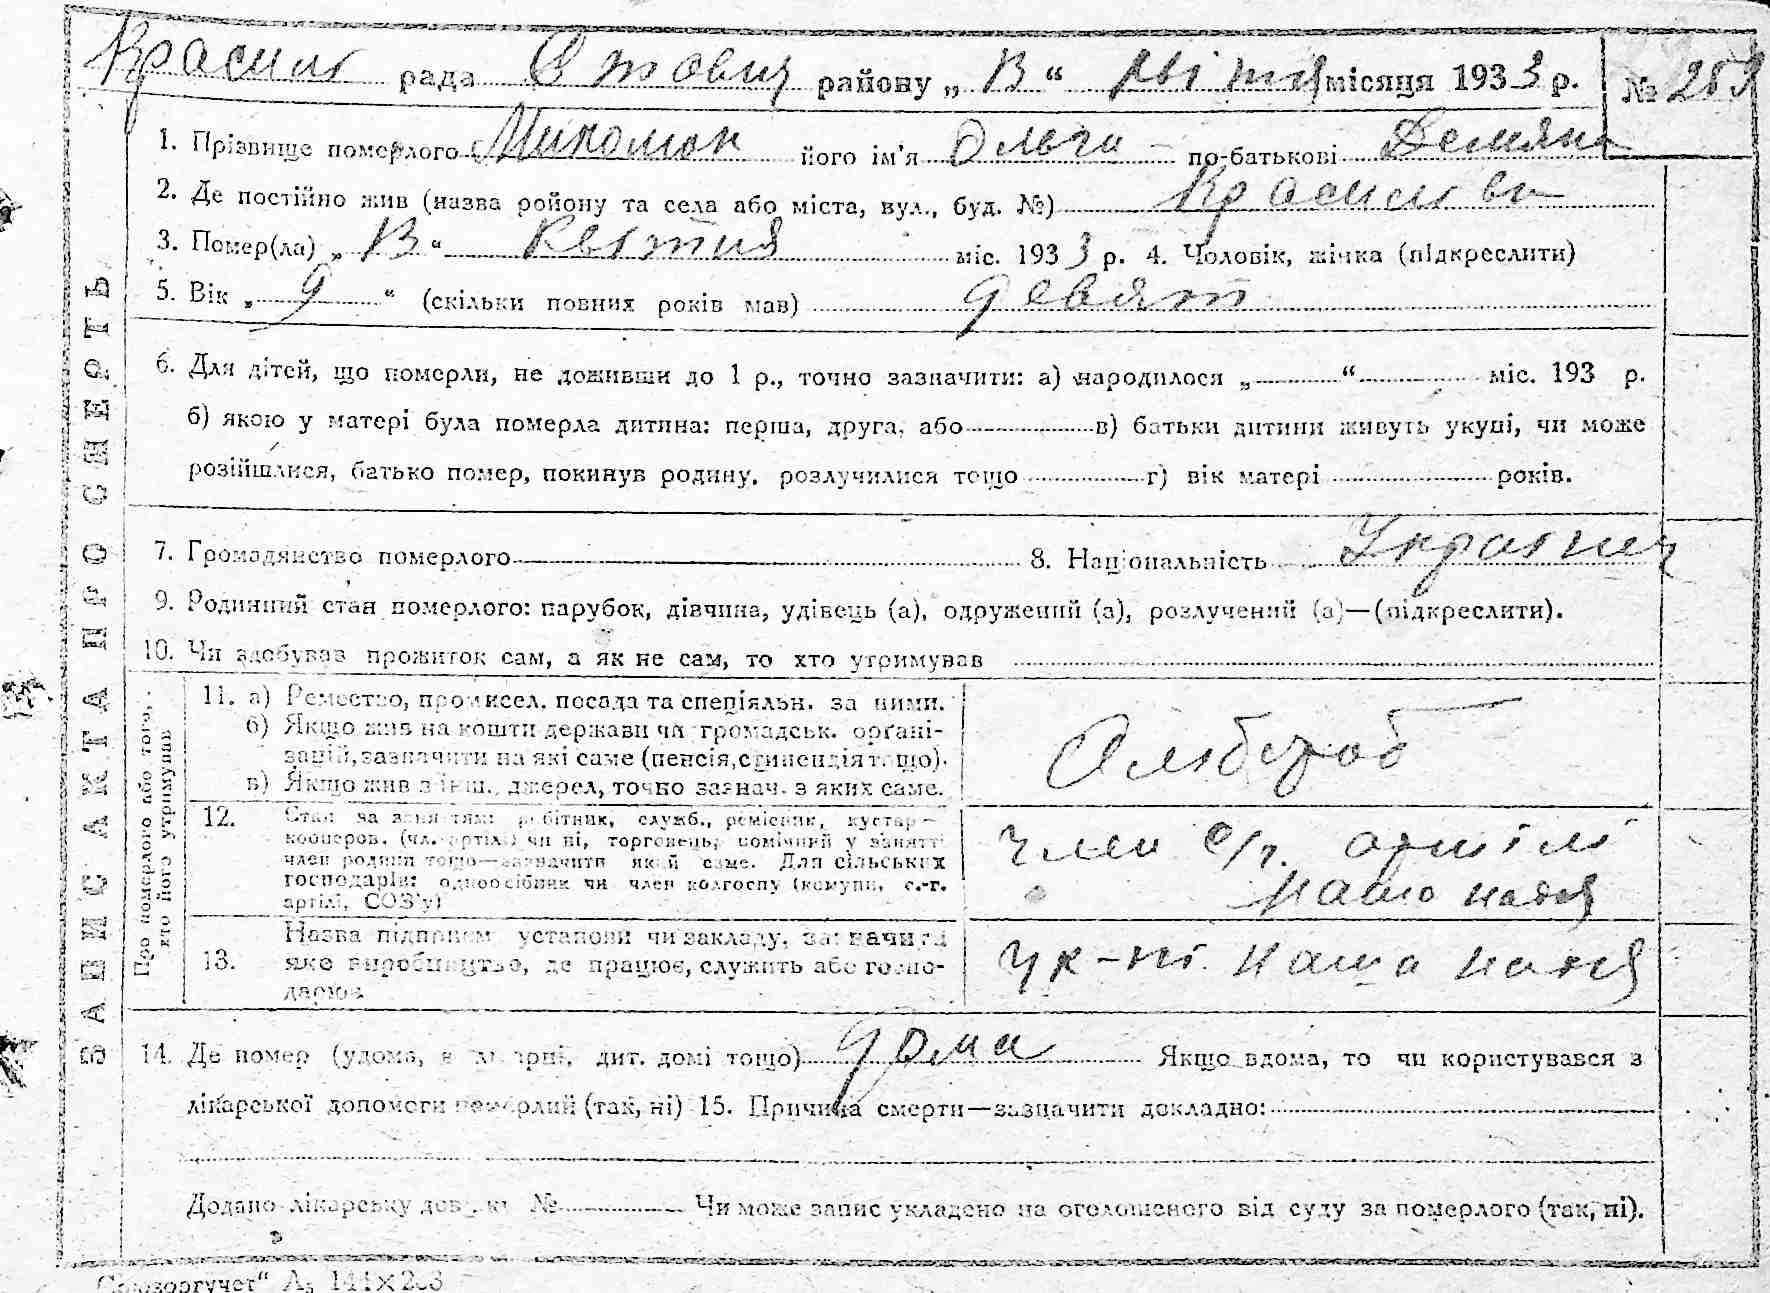 рада району „ “ місяця 1933 р. №
1. Прізвище померлого його ім'я Ольги по-батькові Демяна
2. Де постійно жив (назва ройону та села або міста, вул., буд. №)
3. Помер(ла) „ “ квітня міс. 1933 р. 4. Чоловік, жінка (підкреслити)
5. Вік „ 9 “ (скільки повних років мав) девят
6. Для дітей, що померли, не доживши до 1 р., точно зазначити: а) народилося „ “ міс. 193 р.
б) якою у матері була померла дитина: перша, друга, або в) батьки дитини живуть укупі, чи може
розійшлися, батько помер, покинув родину, розлучилися тощо г) вік матері років.
7. Громадянство померлого 8. Національність
9. Родинний стан померлого: парубок, дівчина, удівець (а), одружений (а), розлучений (а)—(підкреслити).
10. Чи здобував прожиток сам, а як не сам, то хто утримував
ЗАПИС АКТА ПРО СМЕРТЬ
Про померлого або того,
хто його утримував
11. а) Ремество, промисел, посада та спеціяльн. за ними.
б) Якщо жив на кошти держави чи громадськ. орґані-
зацій, зазначити на які саме (пенсія, стипендія тощо).
в) Якщо жив з інш. джерел, точно зазнач. з яких саме.
12. Стан за заняттям: робітник, служб., ремісник, кустар—
кооперов. (чл. артілі) чи ні, торговець, помічний у занятті
член родини тощо—зазначити який саме. Для сільських
господарів: одноосібник чи член колгоспу (комуни, с.-г.
артілі, СОЗ'у)
член с/г. артілі
13. Назва підприєм установи чи закладу, зазначити
яке виробництво, де працює, служить або госпо-
дарює
наша
14. Де помер (удома, в лікарні, дит. домі тощо) дома Якщо вдома, то чи користувався з
лікарської допомоги померлий (так, ні) 15. Причина смерти—зазначити докладно:
Додано лікарську довідку № Чи може запис укладено на оголошеного від суду за померлого (так, ні).
Союзоргучет“